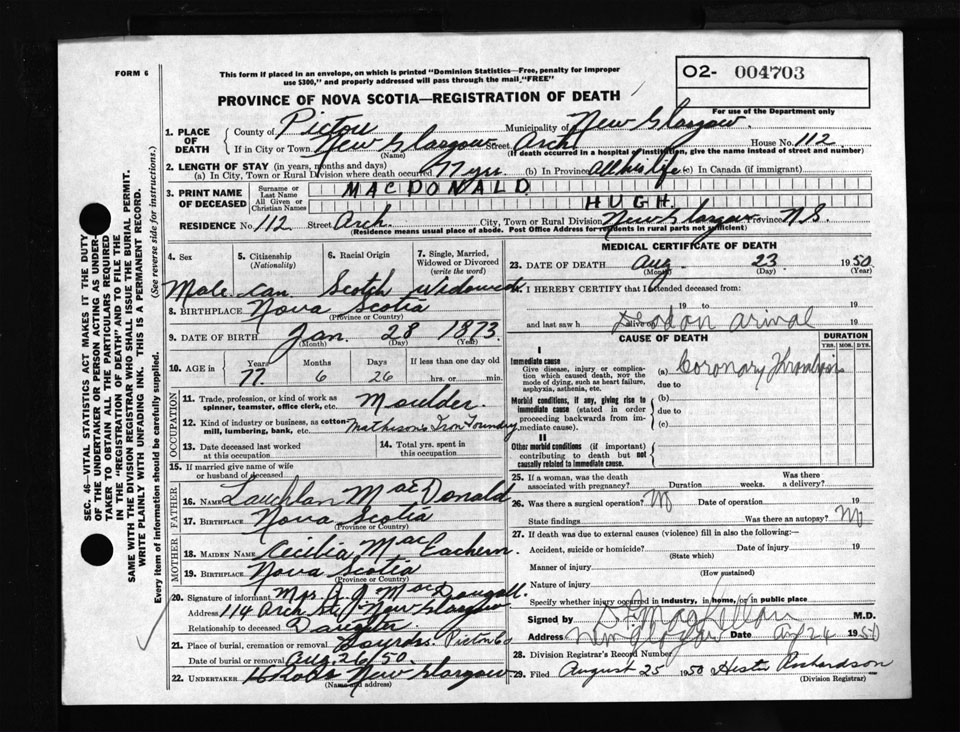 FORM 6
This form if placed in an envelope, on which is printed "Dominion Statistics—Free, penalty for improper
use $300," and properly addressed will pass through the mail "FREE"
02- 004703
PROVINCE OF NOVA SCOTIA—REGISTRATION OF DEATH
For use of the Department only
1. PLACE OF DEATH { County of Pictou Municipality of New Glasgow
If in City or Town New Glasgow Street Arch House No. 112
(Name) (If death occurred in a hospital or institution, give the name instead of street and number)
2. LENGTH OF STAY (in years, months and days)
(a) In City, Town or Rural Division where death occurred 77 yrs. (b) In Province All his life (c) In Canada (if immigrant)
3. PRINT NAME OF DECEASED { Surname or Last Name MACDONALD
All Given or Christian Names HUGH
RESIDENCE No. 112 Street Arch City, Town or Rural Division New Glasgow Province N.S.
(Residence means usual place of abode. Post Office Address for residents in rural parts not sufficient)
4. Sex 5. Citizenship (Nationality) 6. Racial Origin 7. Single, Married, Widowed or Divorced (write the word)
Male Can Scotch Widowed
8. BIRTHPLACE Nova Scotia
(Province or Country)
9. DATE OF BIRTH Jan. 28 1873
(Month) (Day) (Year)
10. AGE in { Years Months Days If less than one day old
77 6 26 hrs. or min.
OCCUPATION
11. Trade, profession, or kind of work as spinner, teamster, office clerk, etc. Moulder.
12. Kind of industry or business, as cotton mill, lumbering, bank, etc. Matheson's Iron Foundry
13. Date deceased last worked at this occupation 14. Total yrs. spent in this occupation
15. If married give name of wife or husband of deceased
FATHER
16. NAME Lauchlan MacDonald
17. BIRTHPLACE Nova Scotia
(Province or Country)
MOTHER
18. MAIDEN NAME Cecilia MacEachern
19. BIRTHPLACE Nova Scotia
(Province or Country)
20. Signature of informant Mrs. A. J. MacDougall.
Address 114 Arch St. New Glasgow
Relationship to deceased Daughter
21. Place of burial, cremation or removal Lourdes. Pictou Co
Date of burial or removal Aug. 26/50.
22. UNDERTAKER New Glasgow
(Name and address)
MEDICAL CERTIFICATE OF DEATH
23. DATE OF DEATH Aug 23 1950
(Month) (Day) (Year)
I HEREBY CERTIFY that I attended deceased from:
19 to 19
and last saw h alive on 19
Dead on arival
CAUSE OF DEATH DURATION
YRS. MOS. DYS.
I
Immediate cause
Give disease, injury or complication which caused death, not the mode of dying, such as heart failure, asphyxia, asthenia, etc.
(a) Coronary Thrombosis
due to
Morbid conditions, if any, giving rise to immediate cause (stated in order proceeding backwards from immediate cause).
(b)
due to
(c)
II
Other morbid conditions (if important) contributing to death but not causally related to immediate cause.
25. If a woman, was the death associated with pregnancy? Duration weeks. Was there a delivery?
26. Was there a surgical operation? No Date of operation 19
State findings Was there an autopsy? No
27. If death was due to external causes (violence) fill in also the following:—
Accident, suicide or homicide? Date of injury 19
(State which)
Manner of injury
(How sustained)
Nature of injury
Specify whether injury occurred in industry, in home, or in public place
Signed by MacKillan M.D.
Address New Glasgow Date Aug 24 1950
28. Division Registrar's Record Number
29. Filed August 25 1950 Hester Richardson
(Division Registrar)
SEC. 46—VITAL STATISTICS ACT MAKES IT THE DUTY
OF THE UNDERTAKER OR PERSON ACTING AS UNDER-
TAKER TO OBTAIN ALL THE PARTICULARS REQUIRED
IN THE "REGISTRATION OF DEATH" AND TO FILE THE
SAME WITH THE DIVISION REGISTRAR WHO SHALL ISSUE THE BURIAL PERMIT.
WRITE PLAINLY WITH UNFADING INK. THIS IS A PERMANENT RECORD.
Every item of information should be carefully supplied. (See reverse side for instructions.)